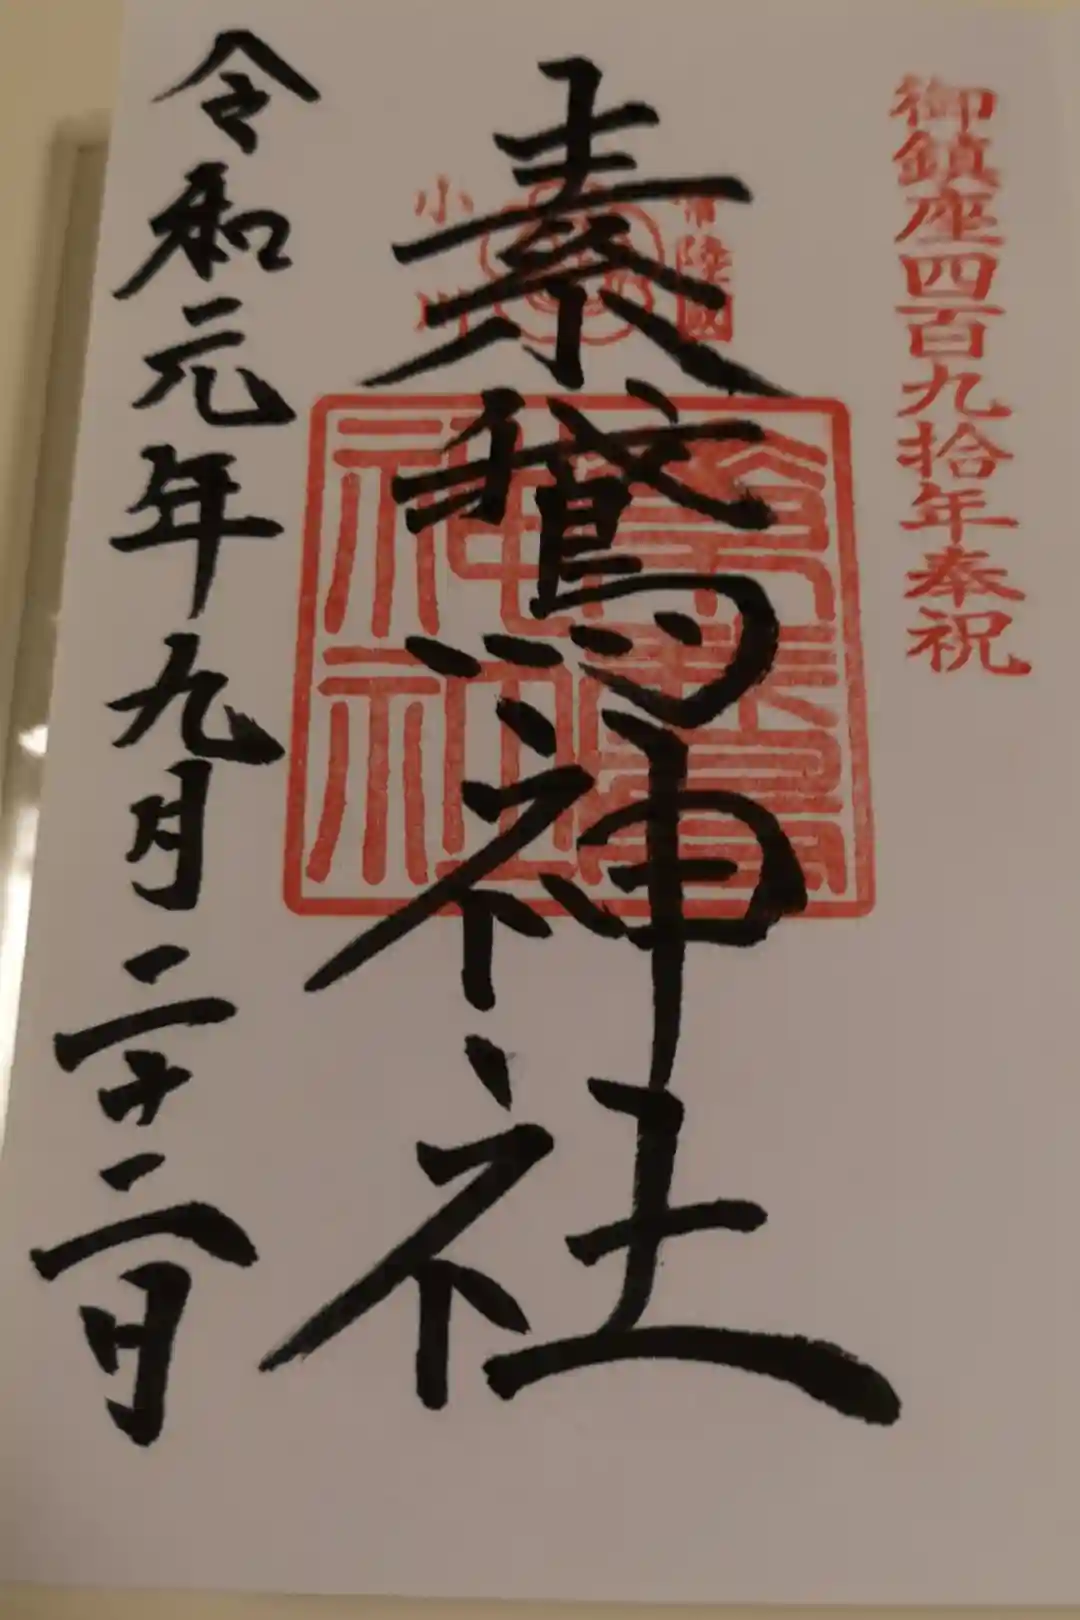 御鎮座四百九拾年奉祝
常陸國
小川
素鵞神社
令和元年九月二十二日